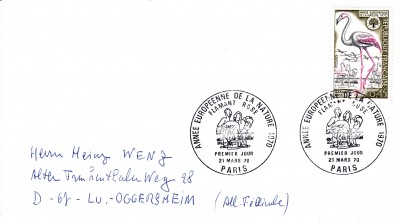 REPUBLIQUE FRANÇAISE
ANNÉE EUROPÉENNE DE LA NATURE 1970
FLAMANT ROSE
PREMIER JOUR
21 MARS 70
PARIS
ANNÉE EUROPÉENNE DE LA NATURE 1970
FLAMANT ROSE
PREMIER JOUR
21 MARS 70
PARIS
Herrn Heinz WENZ
Alter 98
D-67-LU.-OGGERSHEIM